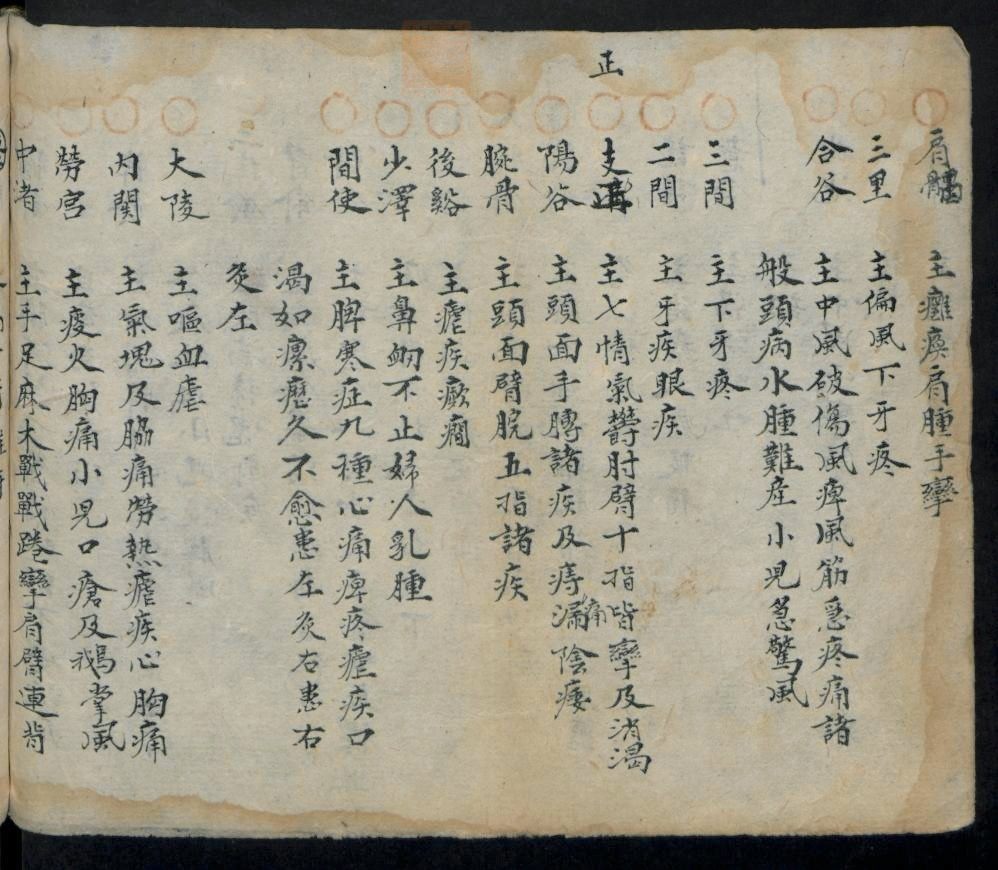 肩髃 主癱瘓肩腫手孿
三里 主偏風下牙疼
合谷 主中風破傷風痺風筋急疼痛諸
般頭病水腫難産小児急驚風
三間 主下牙疼
二間 主牙疾眼疾
正
支溝 主七情氣欝肘臂十指皆孿痛及消渴
陽谷 主頭面手膊諸疾及痔漏陰痿
腕骨 主頭面臂脘五指諸疾
後谿 主瘧疾癲癇
少澤 主鼻衂不止婦人乳腫
間使 主脾寒症九種心痛痺疼瘧疾口
渴如瘰癧久不愈患左灸右患右
灸左
大陵 主嘔血瘧
内関 主氣塊及脇痛勞熱瘧疾心胸痛
勞宫 主痰火胸痛小児口瘡及鵝掌風
中渚 主手足麻木戰戰踡孿肩臂連背